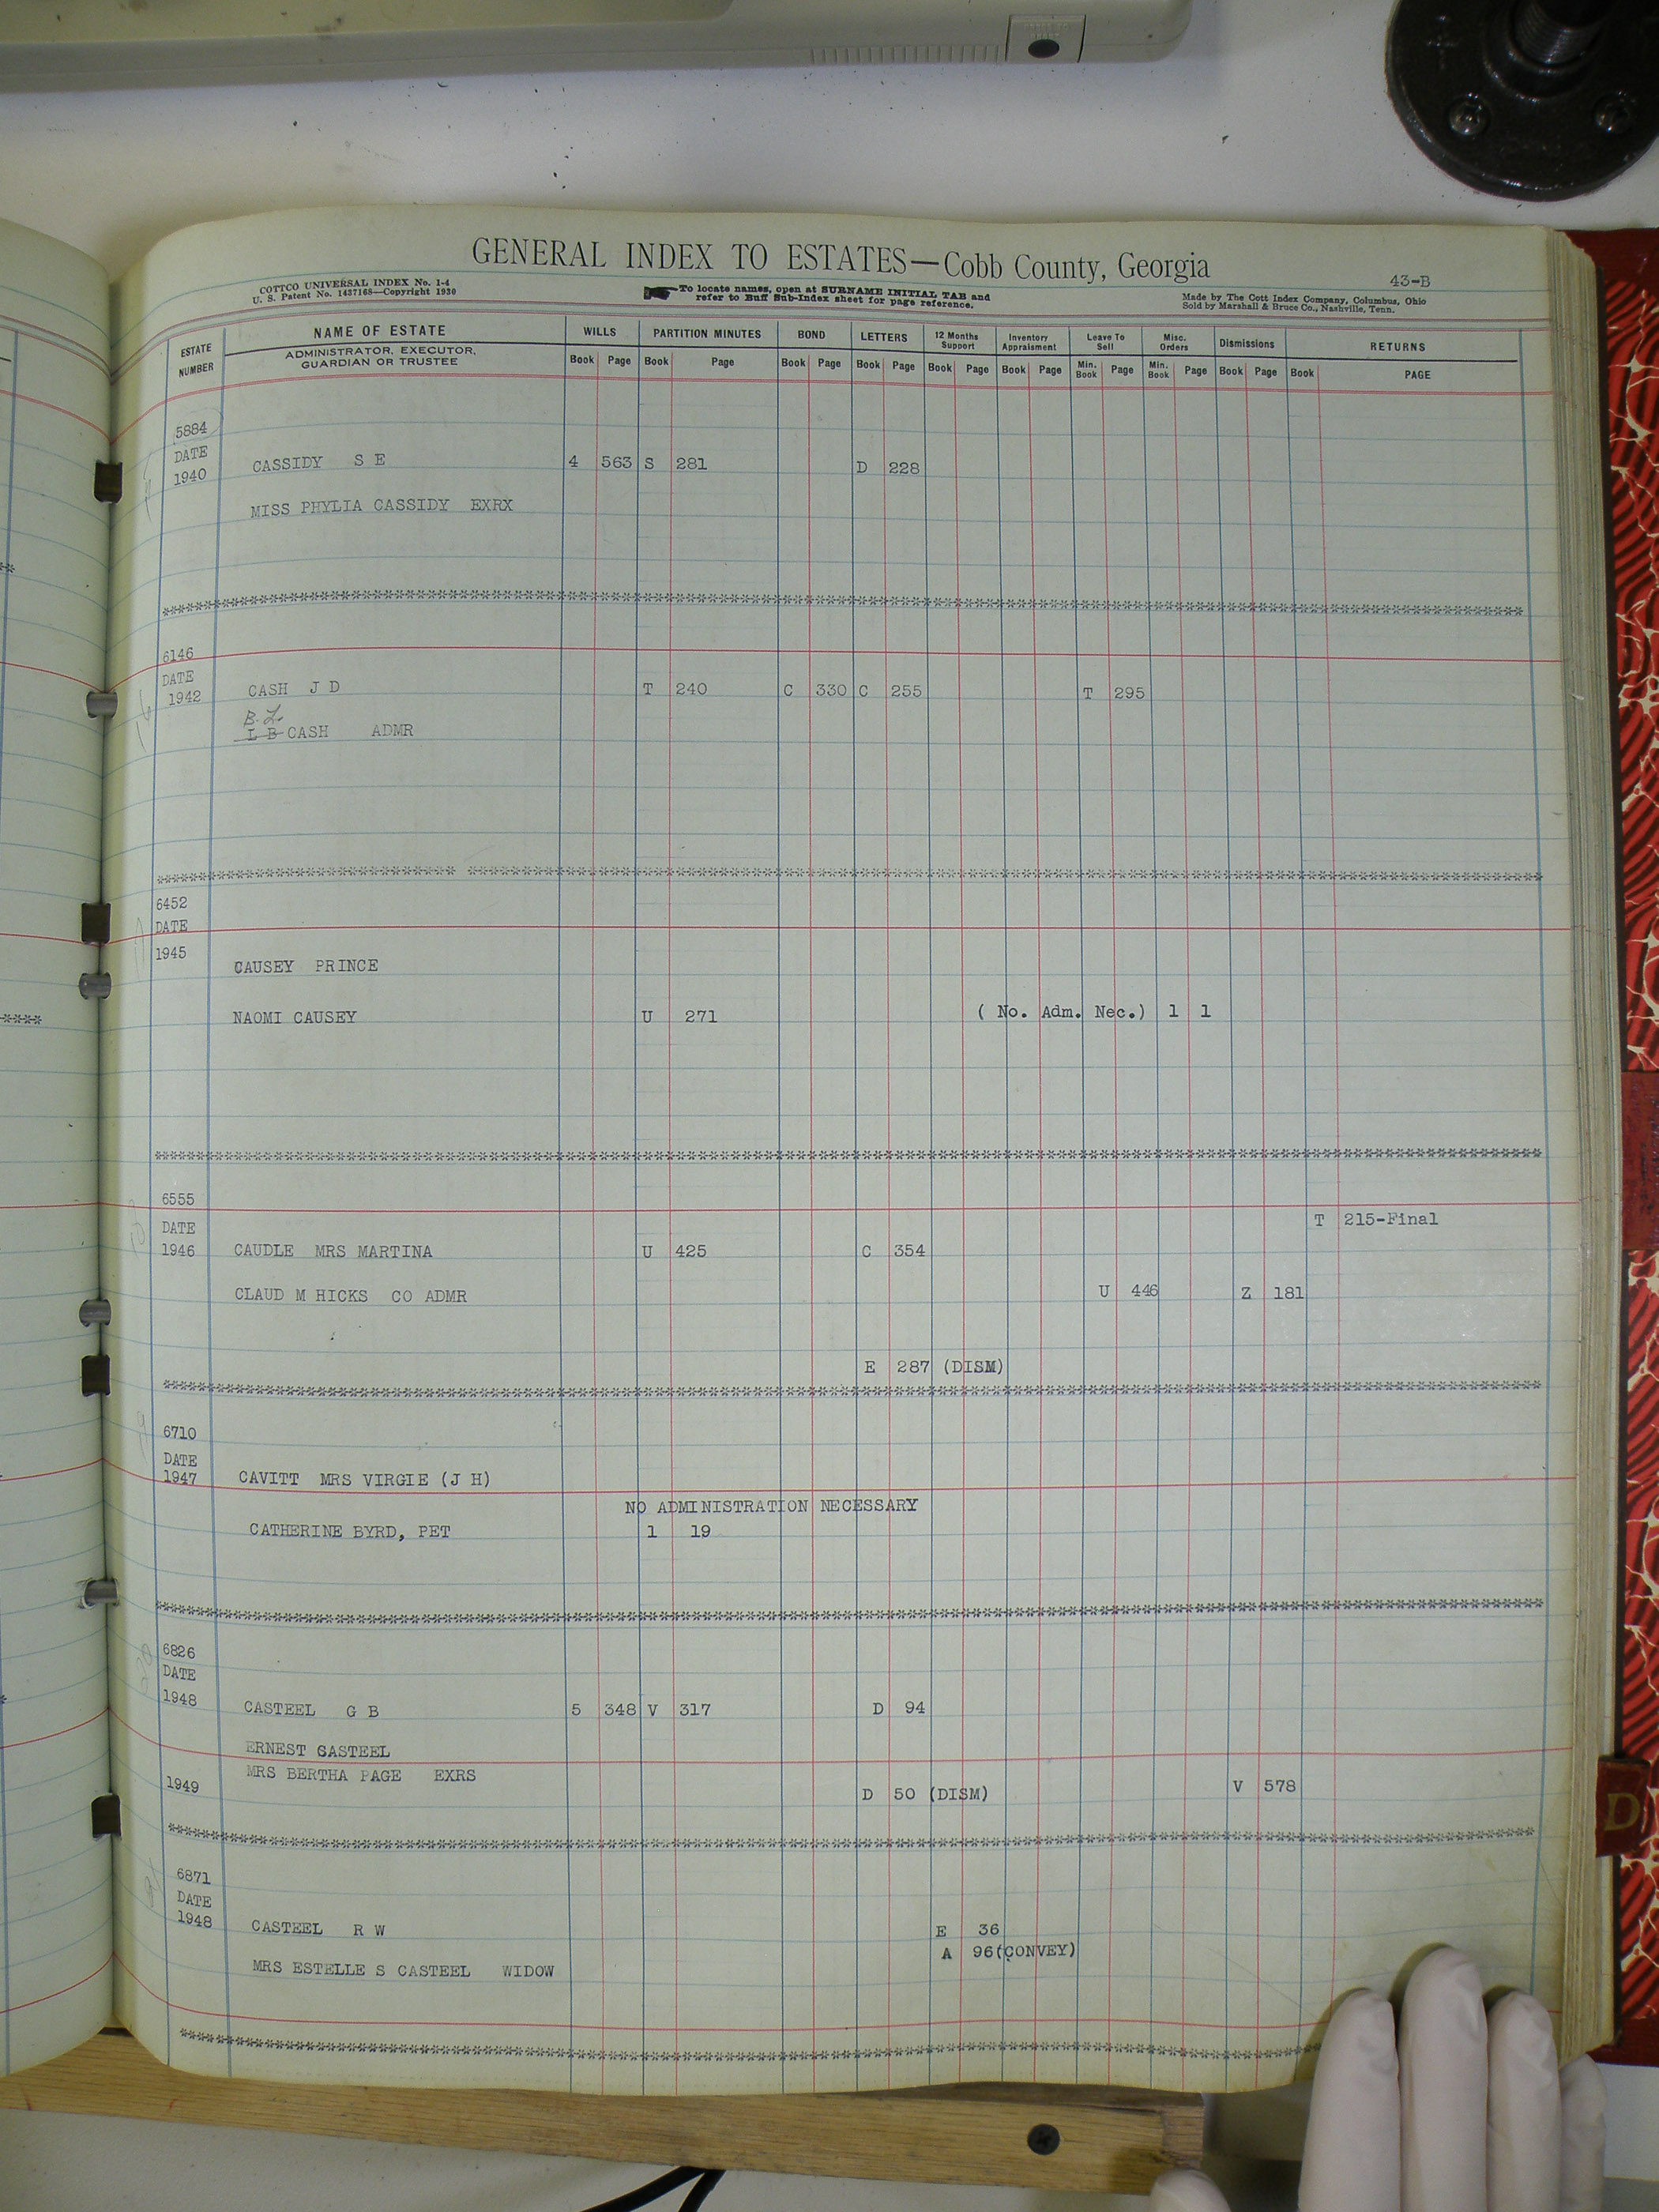 GENERAL INDEX TO ESTATES—Cobb County, Georgia
43-B
COTTCO UNIVERSAL INDEX No. 1-4
U. S. Patent No. 1437168—Copyright 1930
To locate names, open at SURNAME INITIAL TAB and
refer to Buff Sub-Index sheet for page reference.
Made by The Cott Index Company, Columbus, Ohio
Sold by Marshall & Bruce Co., Nashville, Tenn.
ESTATE NUMBER NAME OF ESTATE WILLS PARTITION MINUTES BOND LETTERS 12 Months Support Inventory Appraisment Leave To Sell Misc. Orders Dismissions RETURNS
ADMINISTRATOR, EXECUTOR, GUARDIAN OR TRUSTEE Book Page Book Page Book Page Book Page Book Page Book Page Min. Book Page Min. Book Page Book Page Book PAGE
5884
DATE
1940 CASSIDY S E 4 563 S 281 D 228
MISS PHYLIA CASSIDY EXRX
6146
DATE
1942 CASH J D T 240 C 330 C 255 T 295
B. L.
L B CASH ADMR
6452
DATE
1945
CAUSEY PRINCE
NAOMI CAUSEY U 271 ( No. Adm. Nec.) 1 1
6555
DATE T 215-Final
1946 CAUDLE MRS MARTINA U 425 C 354
CLAUD M HICKS CO ADMR U 446 Z 181
E 287 (DISM)
6710
DATE
1947 CAVITT MRS VIRGIE (J H)
NO ADMINISTRATION NECESSARY
CATHERINE BYRD, PET 1 19
6826
DATE
1948 CASTEEL G B 5 348 V 317 D 94
ERNEST CASTEEL
MRS BERTHA PAGE EXRS
1949 D 50 (DISM) V 578
6871
DATE
1948 CASTEEL R W E 36
A 96(CONVEY)
MRS ESTELLE S CASTEEL WIDOW
D